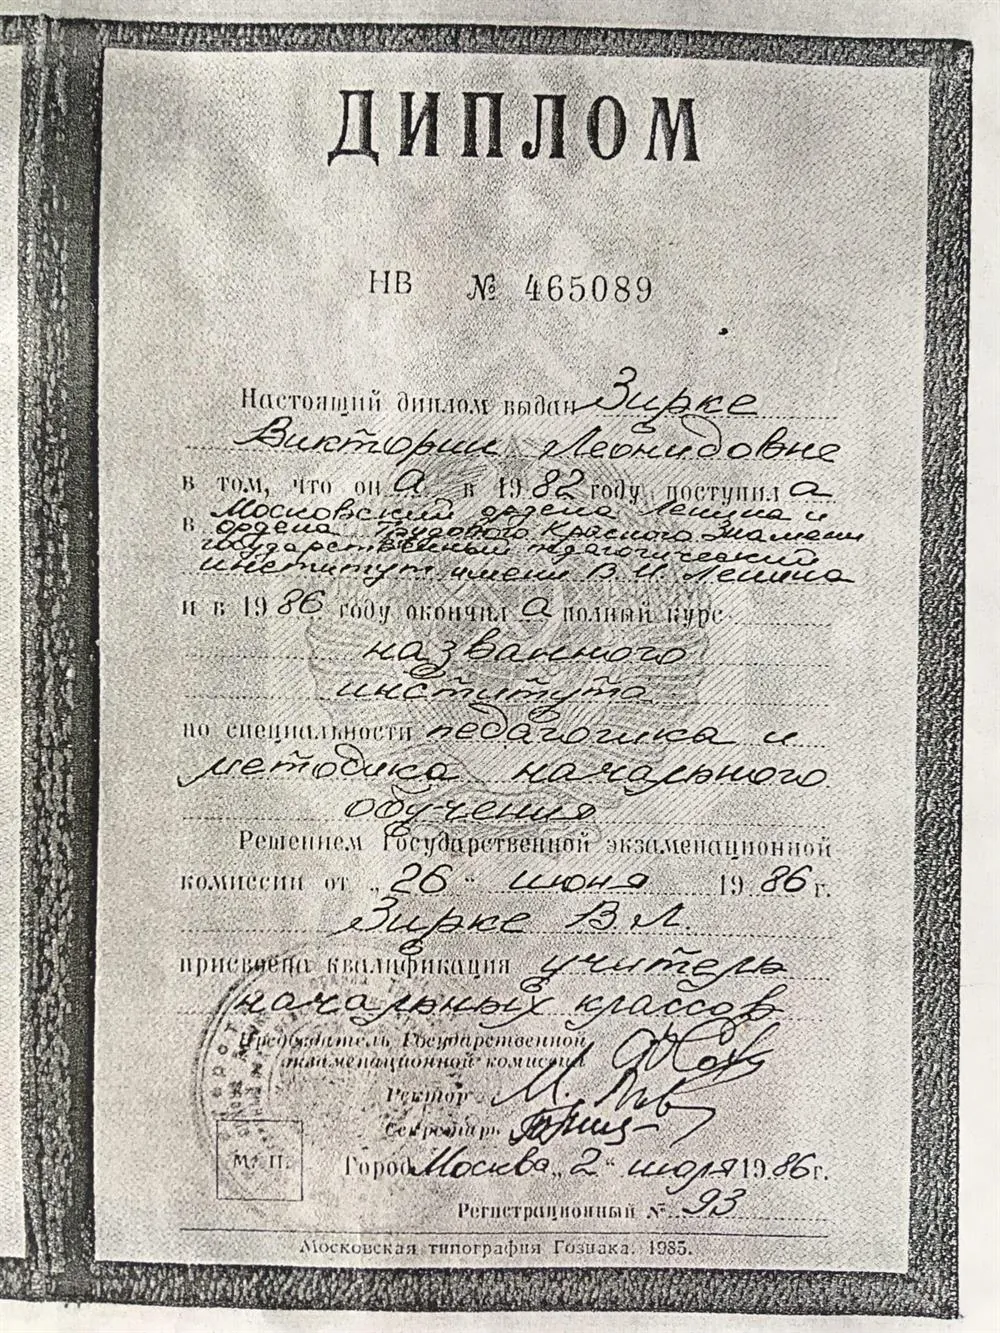 ДИПЛОМ
НВ № 465089
Настоящий диплом выдан Зирке
Виктории Леонидовне
в том, что он а в 1982 году поступил а
в Московский ордена Ленина и
ордена Трудового Красного Знамени
государственный педагогический
институт имени В. И. Ленина
и в 1986 году окончил а полный курс
названного
института
по специальности педагогика и
методика начального
обучения
Решением Государственной экзаменационной
комиссии от „26“ июня 1986 г.
Зирке В. Л.
присвоена квалификация учитель
начальных классов
Председатель Государственной
экзаменационной комиссии
Ректор
Секретарь
М. П. Город Москва „2“ июля 1986 г.
Регистрационный № 93
Московская типография Гознака. 1985.